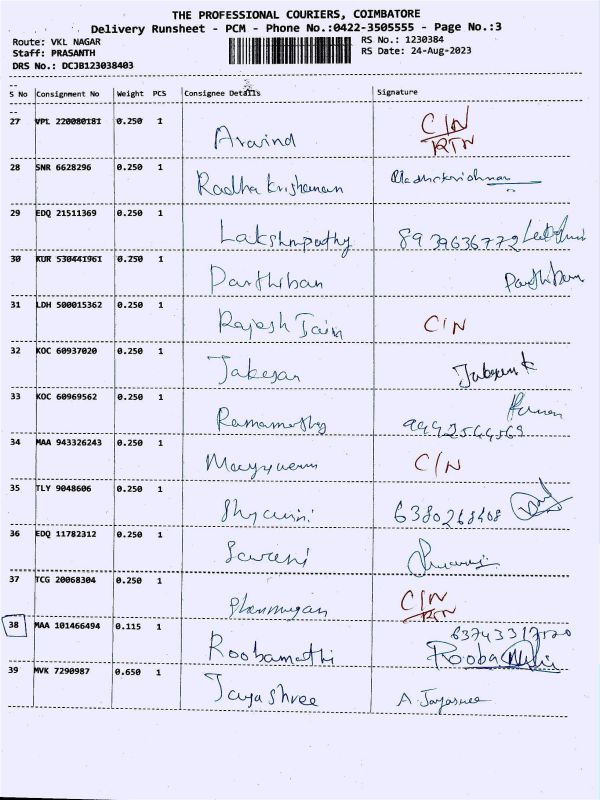 THE PROFESSIONAL COURIERS, COIMBATORE
Delivery Runsheet - PCM - Phone No.:0422-3505555 - Page No.:3
Route: VKL NAGAR
RS No.: 1230384
Staff: PRASANTH
RS Date: 24-Aug-2023
DRS No.: DCJB123038403
S No Consignment No Weight PCS Consignee Details Signature
27 VPL 220080181 0.250 1 Aravind C/N
RTN
28 SNR 6628296 0.250 1 Radha Krishanan Radhakrishnan
29 EDQ 21511369 0.250 1 Lakshmpathy 8939636772
30 KUR 530441961 0.250 1 Parthiban Parthiban
31 LDH 500015362 0.250 1 Rajesh Jain C/N
32 KOC 60937020 0.250 1 Jabesan
33 KOC 60969562 0.250 1 Ramamorthy
9442544569
34 MAA 943326243 0.250 1 C/N
35 TLY 9048606 0.250 1 6380268408
36 EDQ 11782312 0.250 1
37 TCG 20068304 0.250 1 Shanmugan C/N
RTN
38 MAA 101466494 0.115 1 Roobamathi Rooba
39 MVK 7290987 0.650 1 Jayashree A. Jayasree